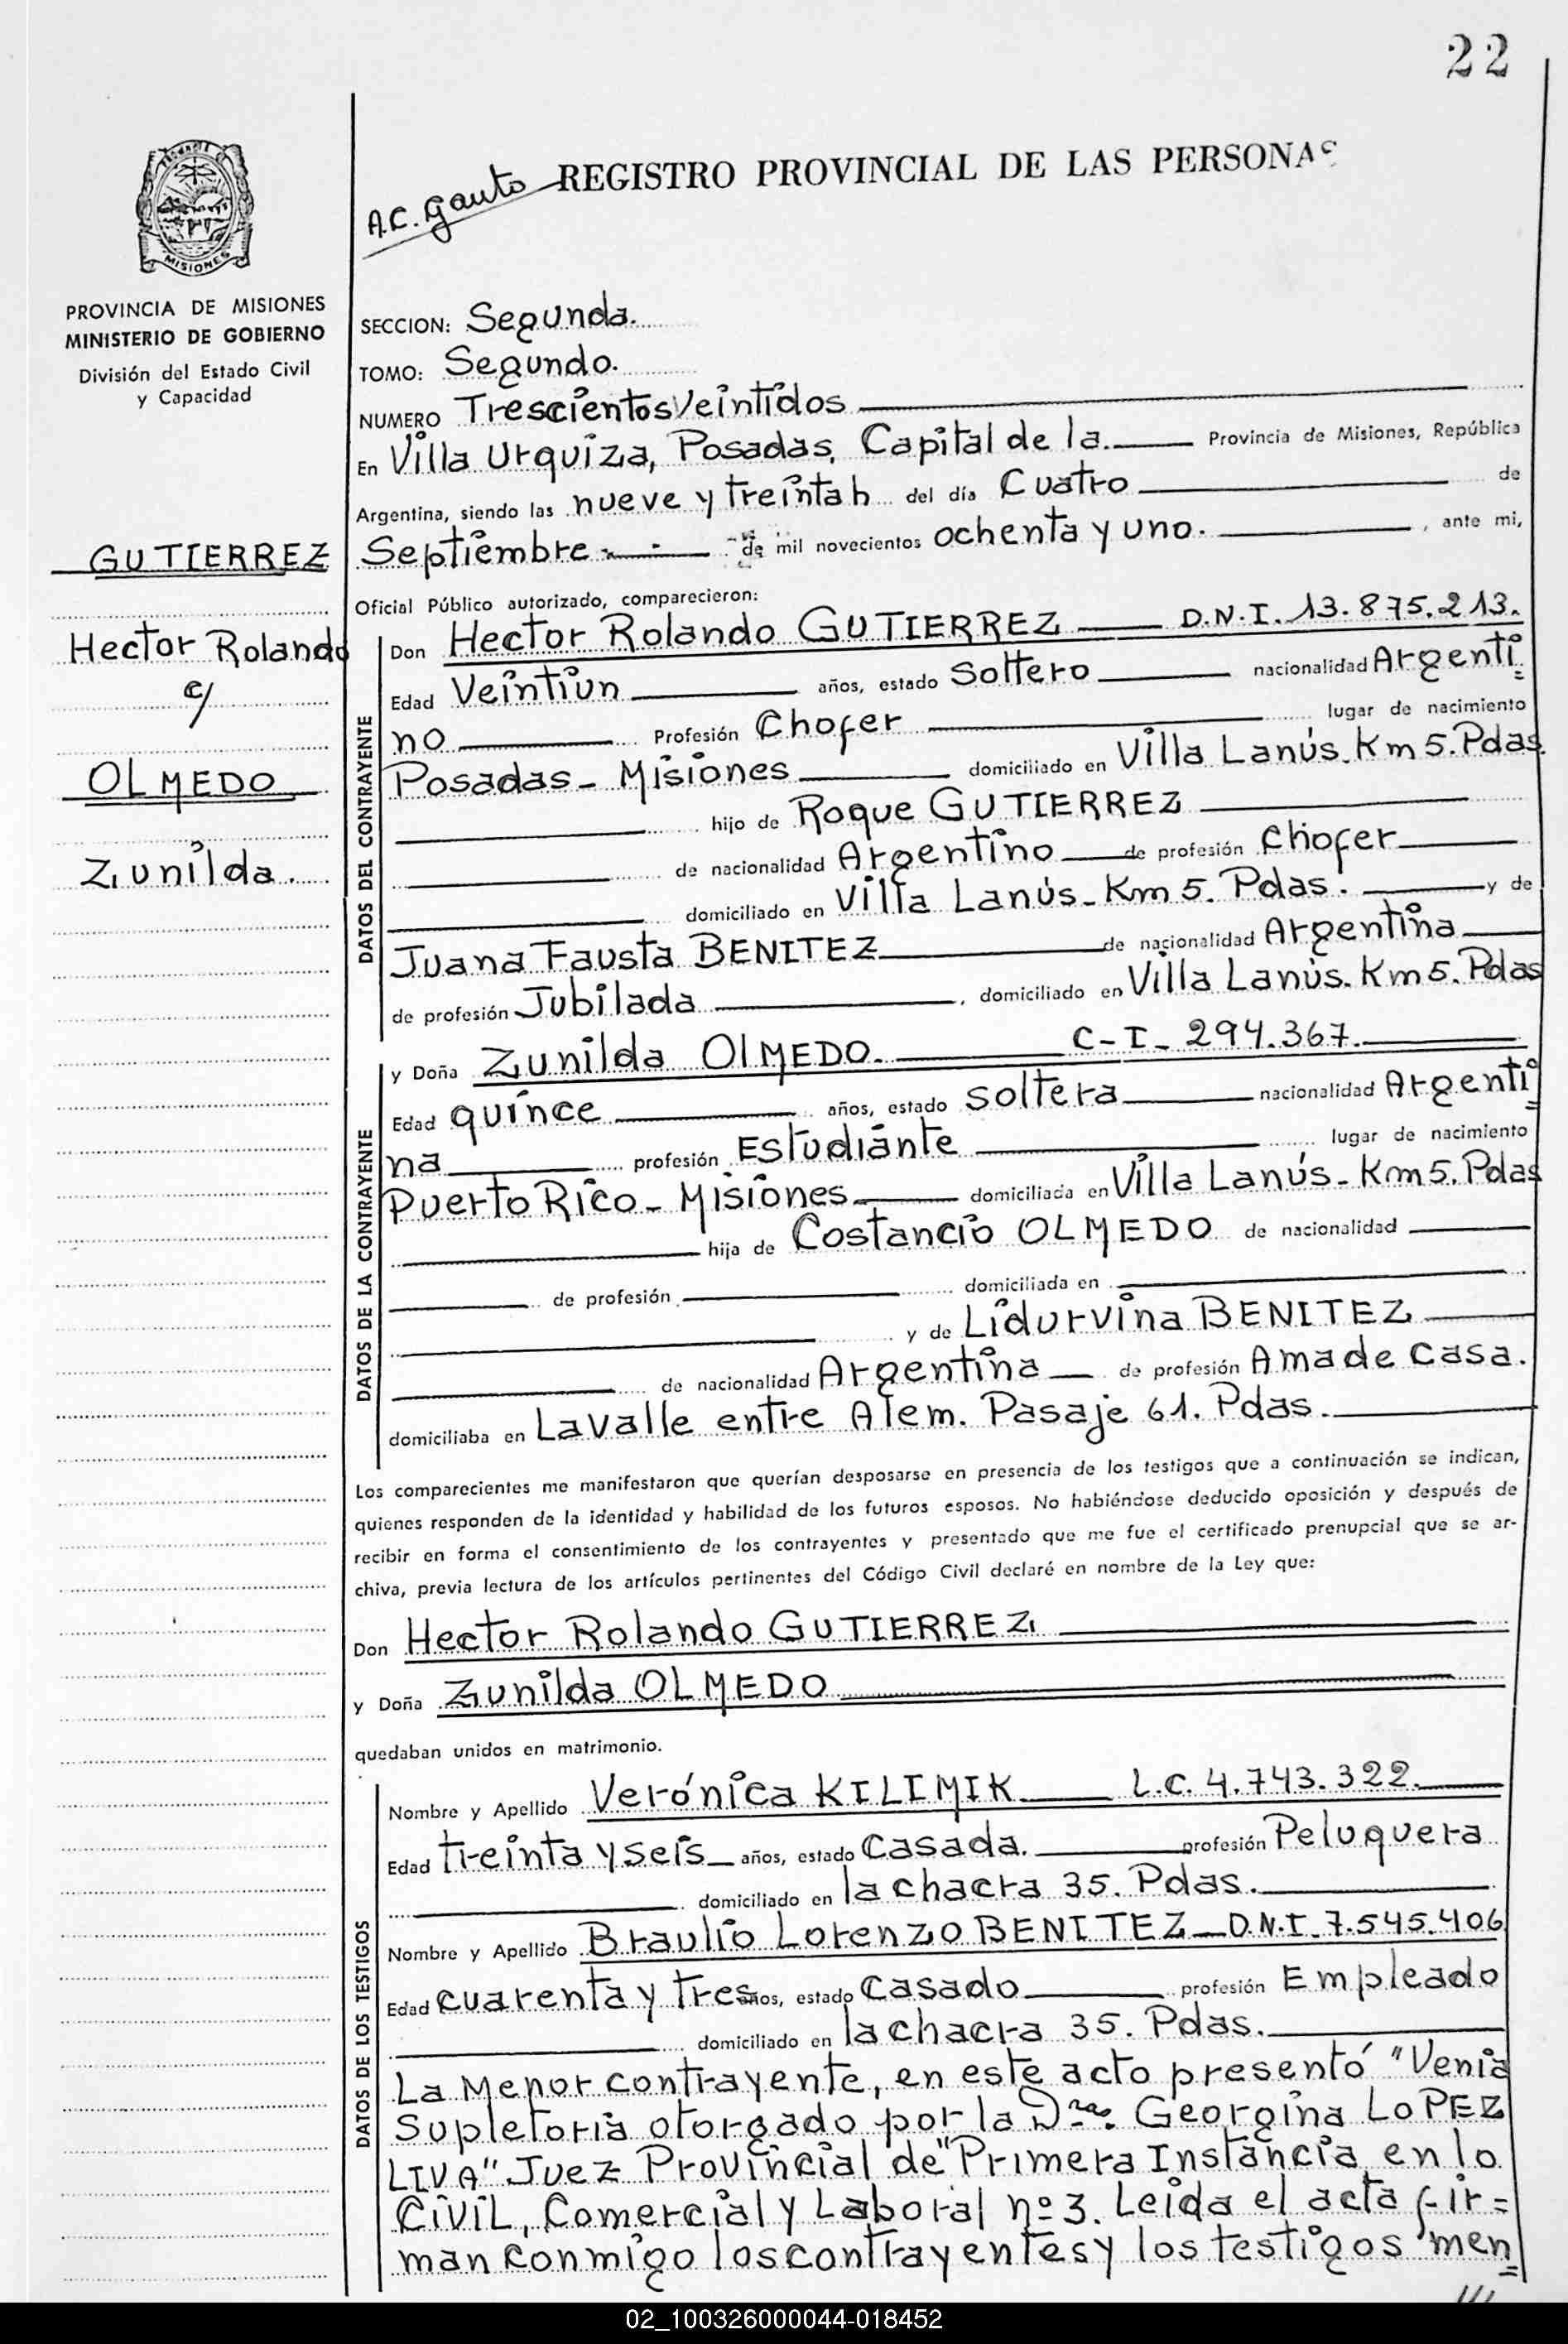 22
A.C. Gauto REGISTRO PROVINCIAL DE LAS PERSONAS
MISIONES
PROVINCIA DE MISIONES
MINISTERIO DE GOBIERNO
División del Estado Civil
y Capacidad
GUTIERREZ
Hector Rolando
c/
OLMEDO
Zunilda.
SECCION: Segunda.
TOMO: Segundo.
NUMERO Trescientos Veintidos
En Villa Urquiza, Posadas, Capital de la. Provincia de Misiones, República
Argentina, siendo las nueve y treinta h del día Cuatro de
Septiembre de mil novecientos ochenta y uno. , ante mi,
Oficial Público autorizado, comparecieron:
DATOS DEL CONTRAYENTE
Don Hector Rolando GUTIERREZ D.N.I. 13.875.213.
Edad Veintiun años, estado Soltero nacionalidad Argenti=
no Profesión Chofer lugar de nacimiento
Posadas - Misiones domiciliado en Villa Lanús. Km 5. Pdas.
hijo de Roque GUTIERREZ
de nacionalidad Argentino de profesión Chofer
domiciliado en Villa Lanús - Km 5. Pdas. y de
Juana Fausta BENITEZ de nacionalidad Argentina
de profesión Jubilada , domiciliado en Villa Lanús. Km 5. Pdas
DATOS DE LA CONTRAYENTE
y Doña Zunilda OLMEDO. C-I- 294.367.
Edad quince años, estado soltera nacionalidad Argenti=
na profesión Estudiante lugar de nacimiento
Puerto Rico - Misiones domiciliada en Villa Lanús - Km 5. Pdas
hija de Costancio OLMEDO de nacionalidad
de profesión domiciliada en
y de Lidurvina BENITEZ
de nacionalidad Argentina de profesión Ama de Casa.
domiciliaba en Lavalle entre Alem. Pasaje 61. Pdas.
Los comparecientes me manifestaron que querían desposarse en presencia de los testigos que a continuación se indican,
quienes responden de la identidad y habilidad de los futuros esposos. No habiéndose deducido oposición y después de
recibir en forma el consentimiento de los contrayentes y presentado que me fue el certificado prenupcial que se ar-
chiva, previa lectura de los artículos pertinentes del Código Civil declaré en nombre de la Ley que:
Don Hector Rolando GUTIERREZ
y Doña Zunilda OLMEDO
quedaban unidos en matrimonio.
DATOS DE LOS TESTIGOS
Nombre y Apellido Verónica KILIMIK L.C. 4.743.322.
Edad treinta y seis años, estado Casada. profesión Peluquera
domiciliado en la chacra 35. Pdas.
Nombre y Apellido Braulio Lorenzo BENITEZ D.N.I. 7.545.406
Edad cuarenta y tres años, estado Casado profesión Empleado
domiciliado en la chacra 35. Pdas.
La Menor contrayente, en este acto presentó "Venia
Supletoria otorgado por la Dra. Georgina LOPEZ
LIVA" Juez Provincial de "Primera Instancia en lo
Civil, Comercial y Laboral nº 3. Leida el acta fir=
man conmigo los contrayentes y los testigos men=
///
02_100326000044-018452